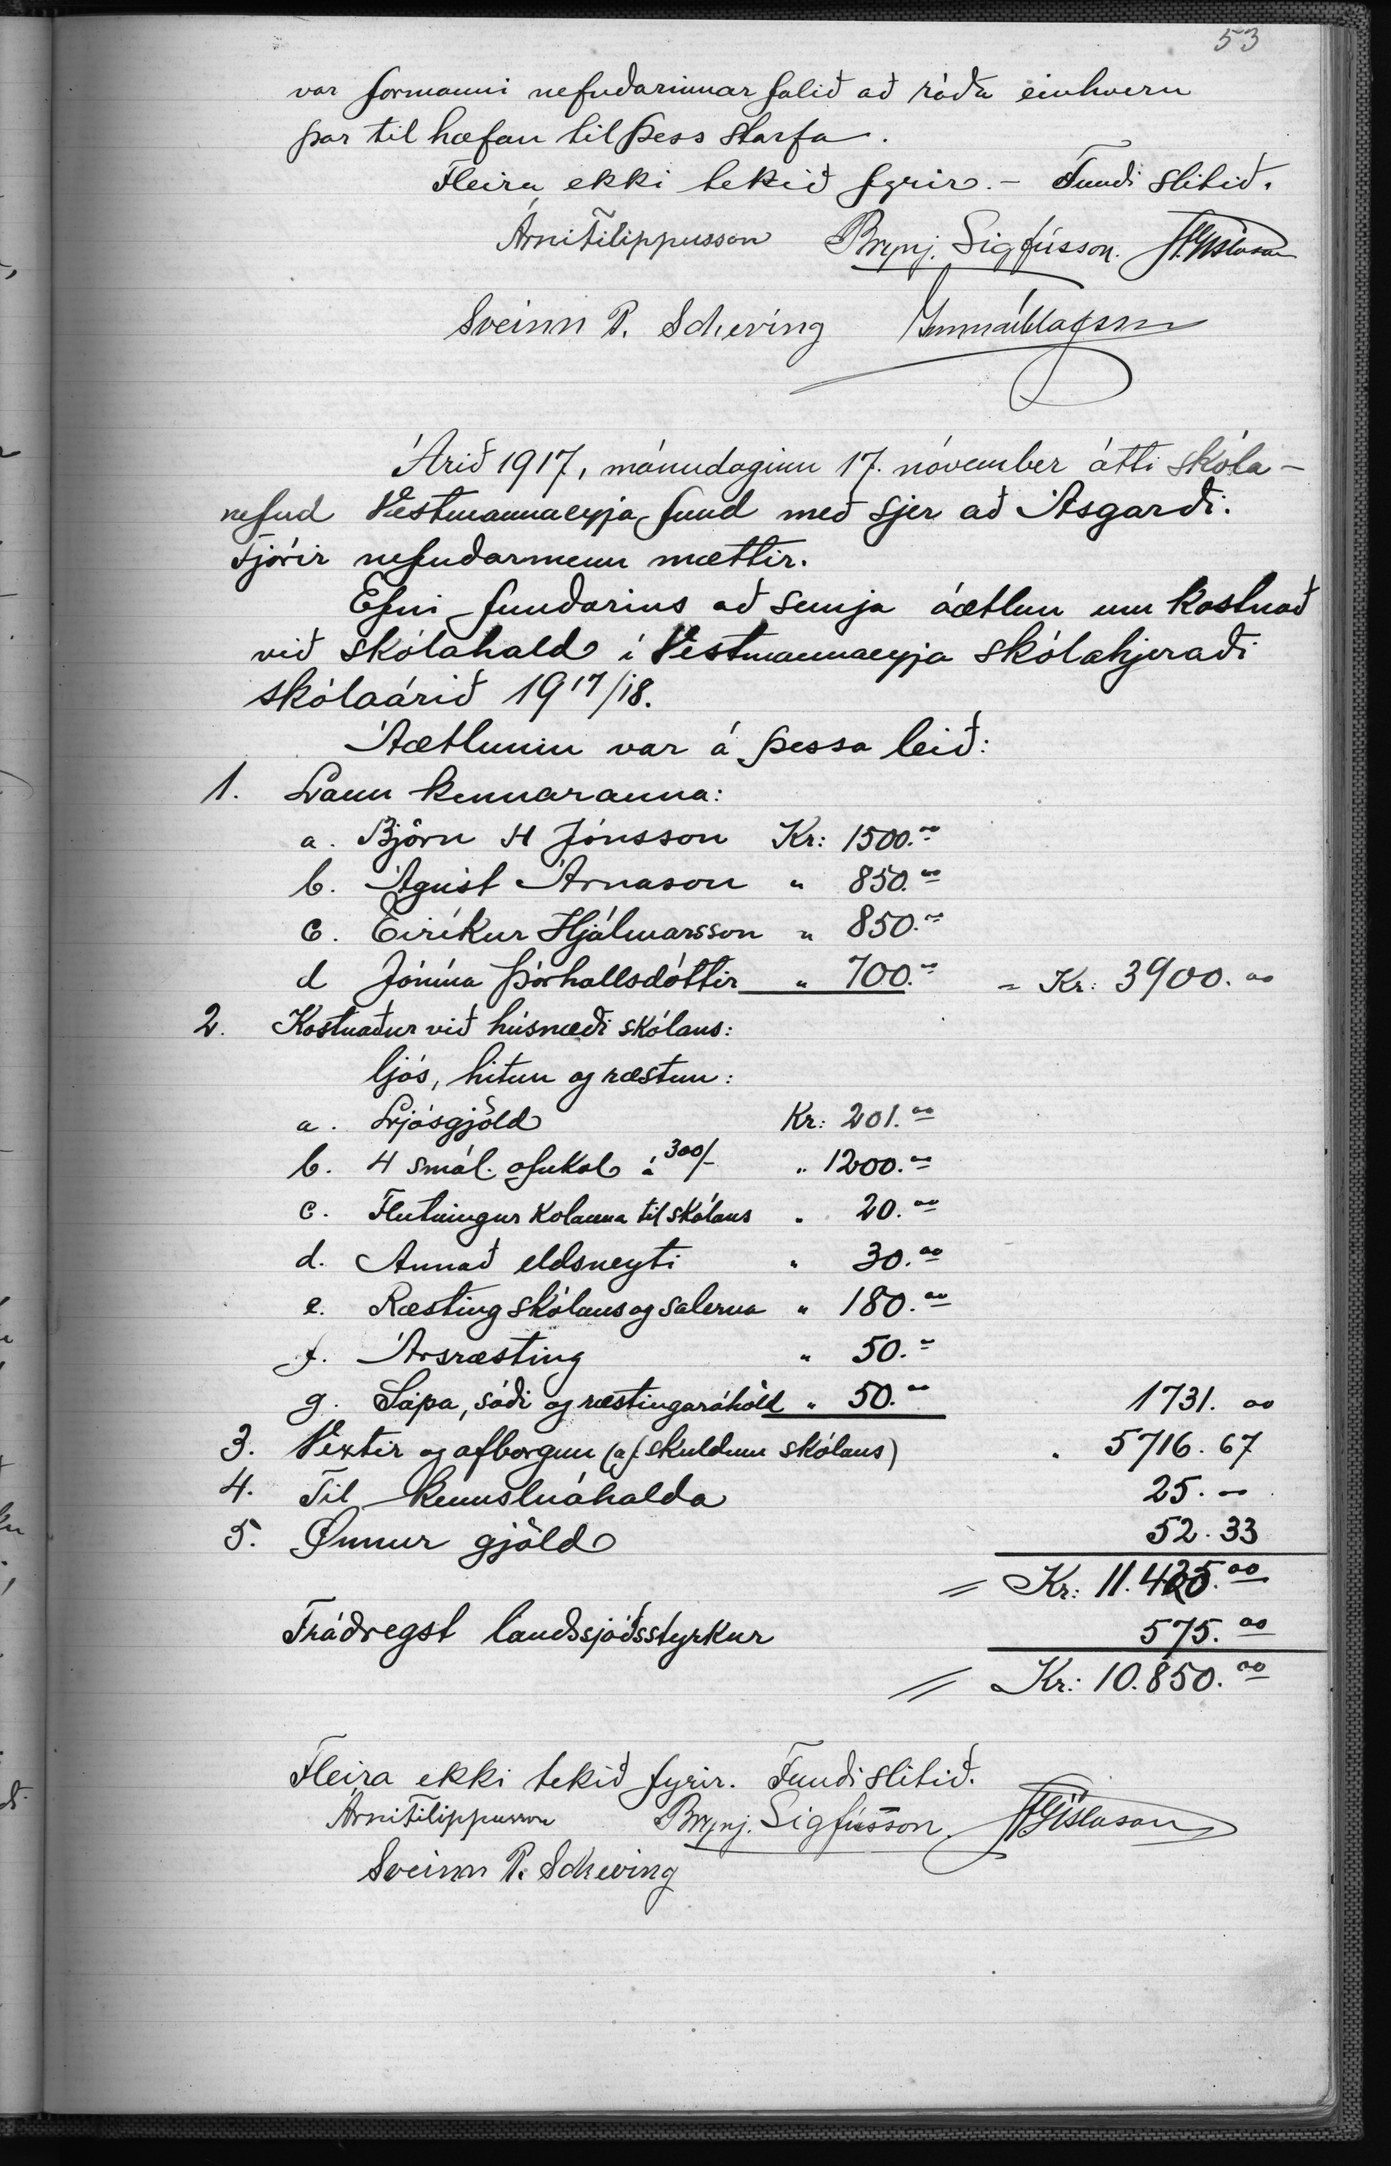 53
var formanni nefndarinnar falið að ráða einhvern
þar til hæfan til þess starfa.
Fleira ekki tekið fyrir. – Fundi slitið.
Árni Filippusson Brynj. Sigfússon. St. Gíslason
Sveinn P. Scheving
Árið 1917, mánudaginn 17. nóvember átti skóla-
nefnd Vestmannaeyja fund með sjer að Ásgarði.
Fjórir nefndarmenn mættir.
Efni fundarins að semja áætlun um kostnað
við skólahald í Vestmannaeyja skólahjeraði
skólaárið 1917/18.
Áætlunin var á þessa leið:
1. Laun kennaranna:
a. Björn H Jónsson Kr: 1500.00
b. Ágúst Árnason " 850.00
c. Eiríkur Hjálmarsson " 850.00
d Jónína Þórhallsdóttir " 700.00 = Kr: 3900.00
2. Kostnaður við húsnæði skólans:
ljós, hitun og ræstun:
a. Ljósgjöld Kr: 201.00
b. 4 smál. ofnkol á 300/- " 1200.00
c. Flutningur kolanna til skólans " 20.00
d. Annað eldsneyti " 30.00
e. Ræsting skólans og salerna " 180.00
f. Ársræsting " 50.00
g. Sápa, sódi og ræstingaráhöld " 50.00 1731.00
3. Vextir og afborgun (af skuldum skólans) " 5716.67
4. Til kennsluáhalda 25.–
5. Önnur gjöld 52.33
= Kr: 11.425.00
Frádregst landssjóðsstyrkur 575.00
= Kr: 10.850.00
Fleira ekki tekið fyrir. Fundi slitið.
Árni Filippusson Brynj. Sigfússon St. Gíslason
Sveinn P. Scheving